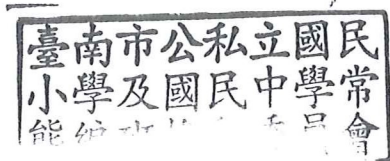 臺南市公私立國民
小學及國民中學常
會